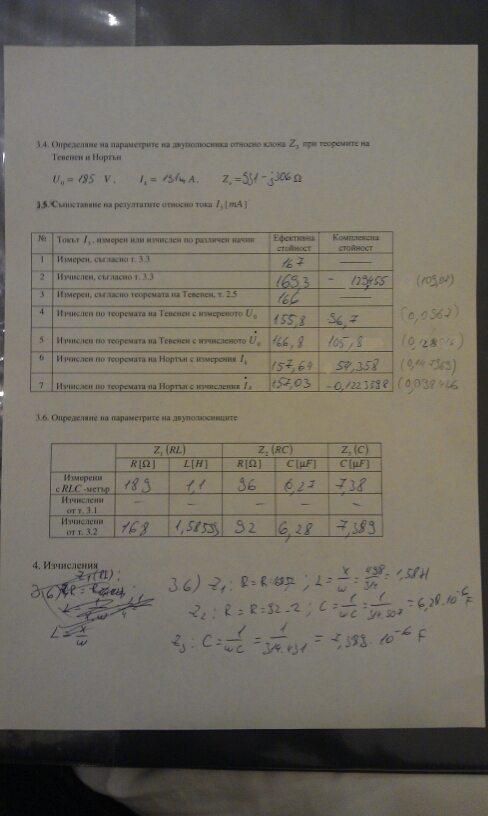 3.4. Определяне на параметрите на двуполюсника относно клона Z₃ при теоремите на
Тевенен и Нортън
U₀ = 195 V. I = 191m A. Z = - j306 Ω
3.5. Съпоставяне на резултатите относно тока I₃ [mA]
№ Токът I₃, измерен или изчислен по различен начин Ефективна стойност Комплексна стойност
1 Измерен, съгласно т. 3.3 167 —
2 Изчислен, съгласно т. 3.3 169,3
3 Измерен, съгласно теоремата на Тевенен, т. 2.5 166 —
4 Изчислен по теоремата на Тевенен с измереното U₀ 155,8 96,7
5 Изчислен по теоремата на Тевенен с изчисленото U̇₀ 166,8 105,8
6 Изчислен по теоремата на Нортън с измерения I 157,64 54,358
7 Изчислен по теоремата на Нортън с изчисления İ 157,03
3.6. Определяне на параметрите на двуполюсниците
Z₁ (RL) Z₂ (RC) Z₃ (C)
R[Ω] L[H] R[Ω] C[μF] C[μF]
Измерени с RLC-метър 189 1,1 96 6,27 7,38
Изчислени от т. 3.1 — — — — —
Изчислени от т. 3.2 168 92 6,28 7,389
4. Изчисления
3.6) Z₁: R = R ; L = x/ω = 498/314 = 1,58H
L = x/ω
Z₂: R = R 92 Ω ; C = 1/ωC = 1/314.507 = 6,28.10⁻⁶ F
Z₃: C = 1/ωC = 1/314.431 = 7,389.10⁻⁶ F